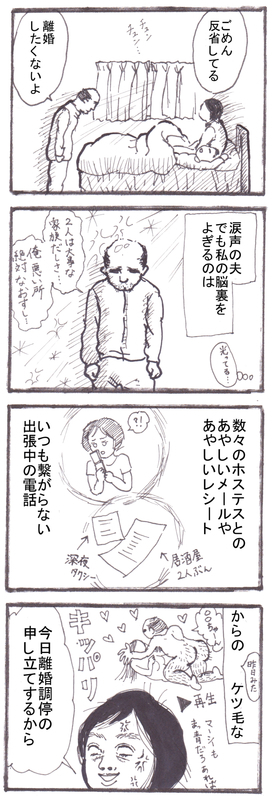 ごめん
反省してる
チュン
チュン…
離婚
したくないよ
涙声の夫
でも私の脳裏を
よぎるのは
光ってる…
2人は大事な
家族だしさ…
俺、悪い所
絶対なおすし…
数々のホステスとの
あやしいメールや
あやしいレシート
?!
いつも繋がらない
出張中の電話
居酒屋
2人ぶん
深夜
タクシー
からの ケツ毛な
昨日みた
○○ちゃん
キッパリ
再生
今日離婚調停の
申し立てするから